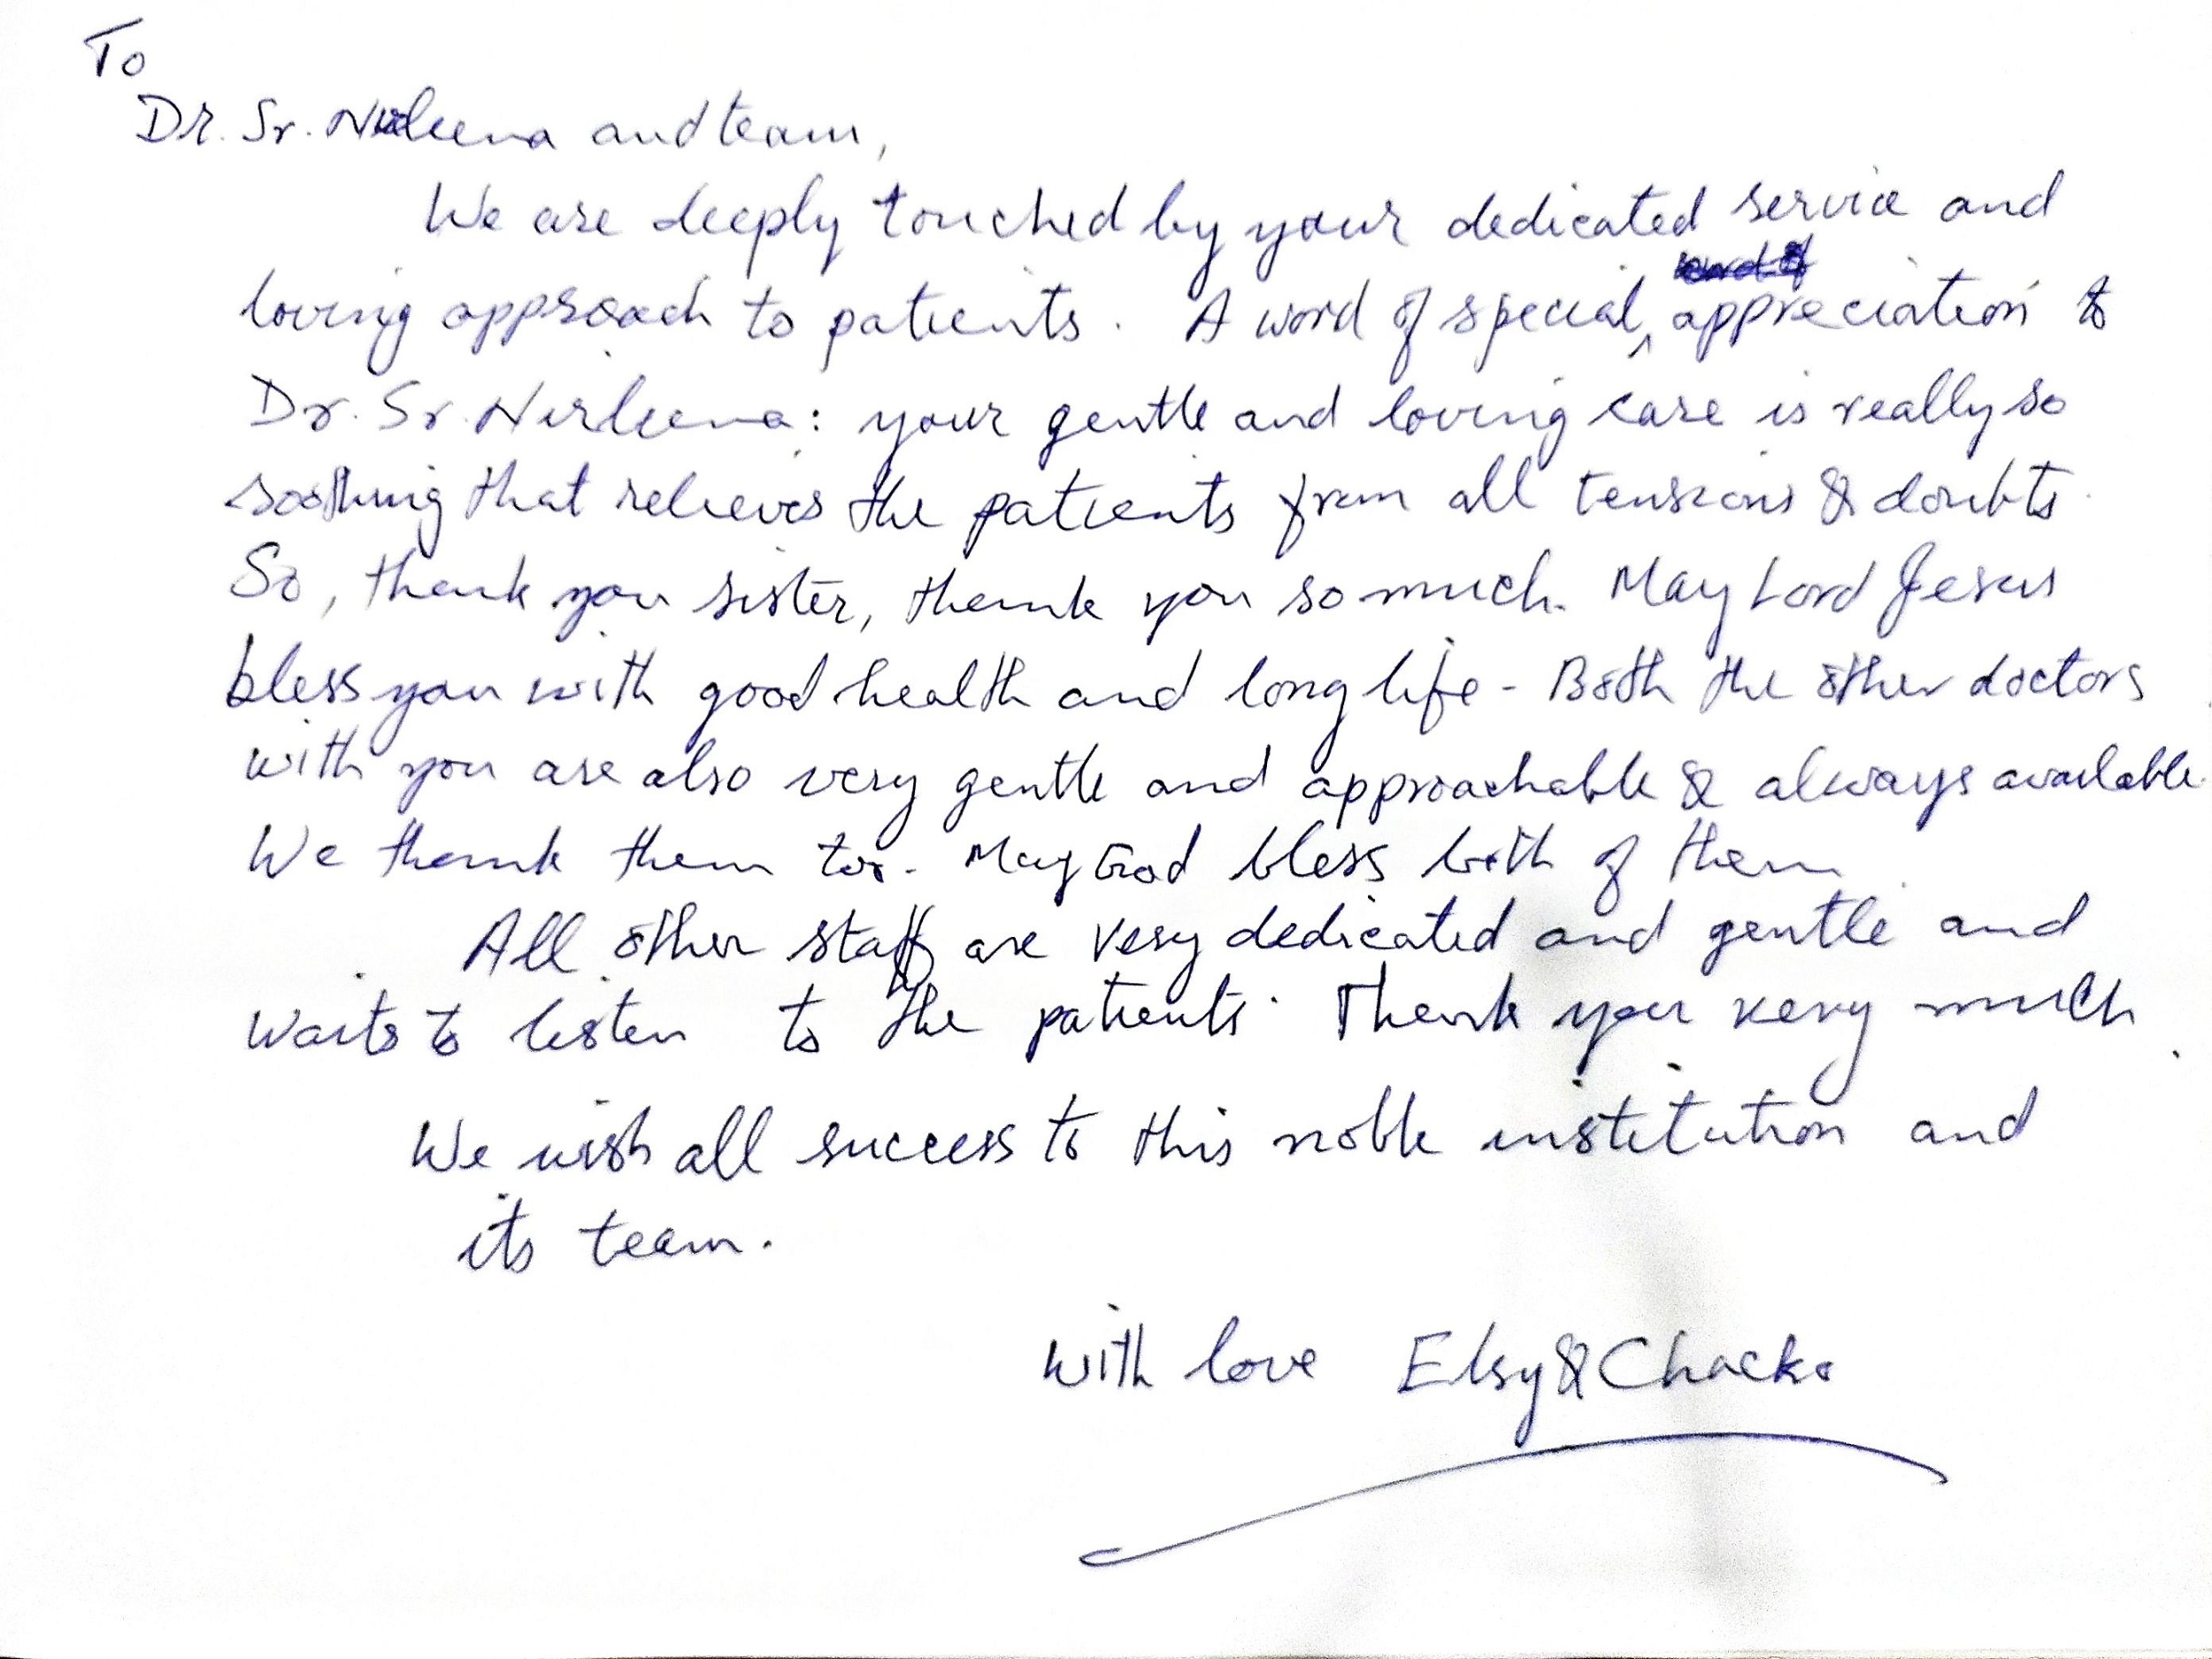 To
Dr. Sr. Nirleena and team,
We are deeply touched by your dedicated service and
loving approach to patients. A word of special appreciation to
Dr. Sr. Nirleena: your gentle and loving care is really so
soothing that relieves the patients from all tensions & doubts.
So, thank you sister, thank you so much. May Lord Jesus
bless you with good health and long life - Both the other doctors
with you are also very gentle and approachable & always available.
We thank them too. May God bless both of them.
All other staff are very dedicated and gentle and
waits to listen to the patients. Thank you very much.
We wish all success to this noble institution and
its team.
With love Elsy & Chacko